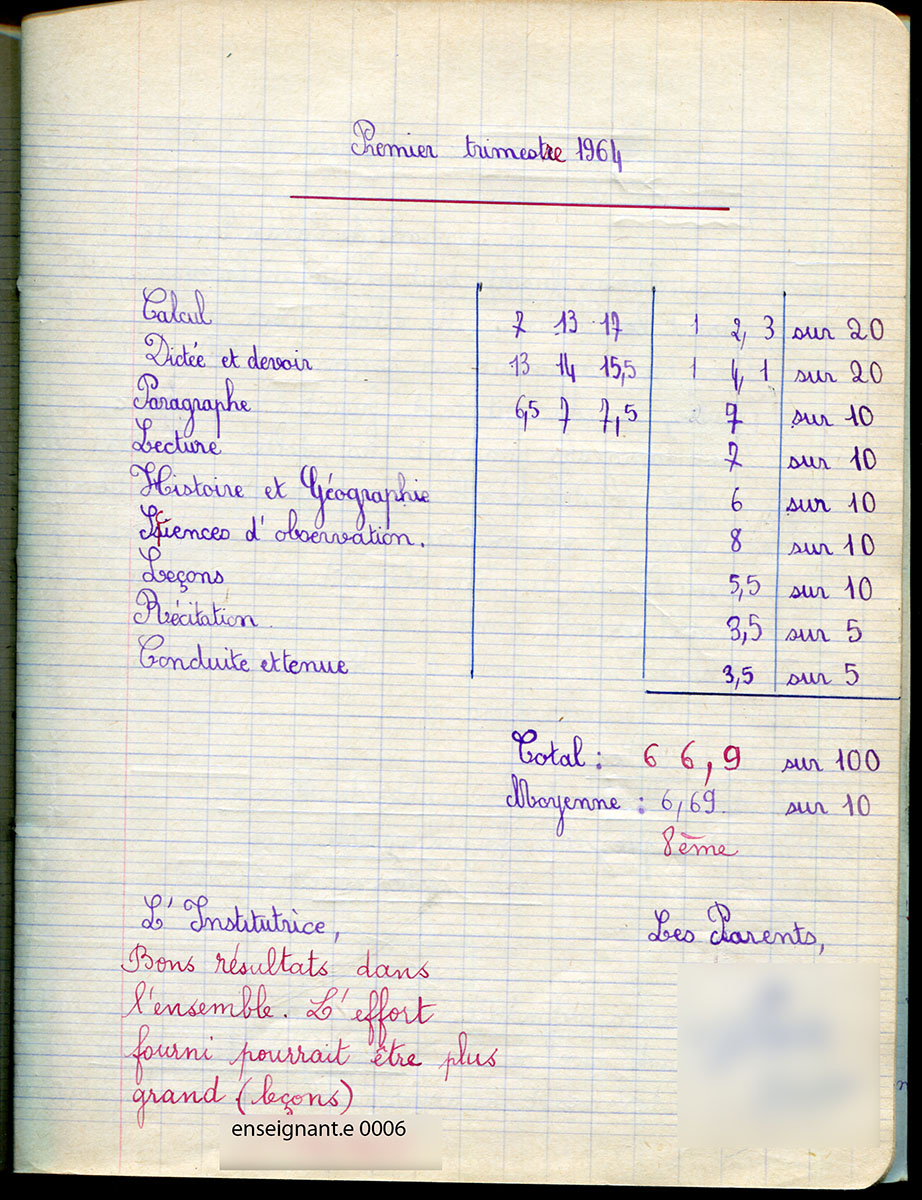 Premier trimestre 1964
Calcul 7 13 17 12,3 sur 20
Dictée et devoir 13 14 15,5 14,1 sur 20
Paragraphe 6,5 7 7,5 7 sur 10
Lecture 7 sur 10
Histoire et Géographie 6 sur 10
Sciences d'observation. 8 sur 10
Leçons 5,5 sur 10
Récitation 3,5 sur 5
Conduite et tenue 3,5 sur 5
Total : 66,9 sur 100
Moyenne : 6,69 sur 10
8ème
L'Institutrice,
Les Parents,
Bons résultats dans
l'ensemble. L'effort
fourni pourrait être plus
grand (leçons)
enseignant.e 0006